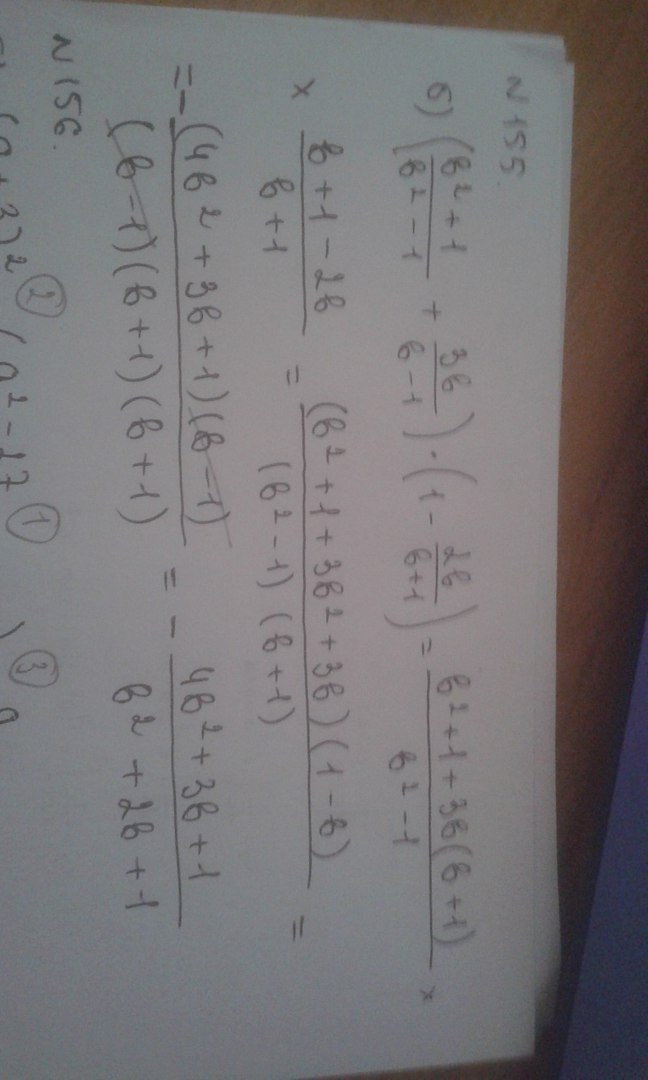 N 155.
б) ((в² + 1)/(в² - 1) + 3в/(в - 1)) · (1 - 2в/(в+1)) = (в² + 1 + 3в(в + 1))/(в² - 1) ×
× (в + 1 - 2в)/(в + 1) = ((в² + 1 + 3в² + 3в)(1 - в))/((в² - 1)(в + 1)) =
= - ((4в² + 3в + 1)(в - 1))/((в - 1)(в + 1)(в + 1)) = - (4в² + 3в + 1)/(в² + 2в + 1)
N 156.